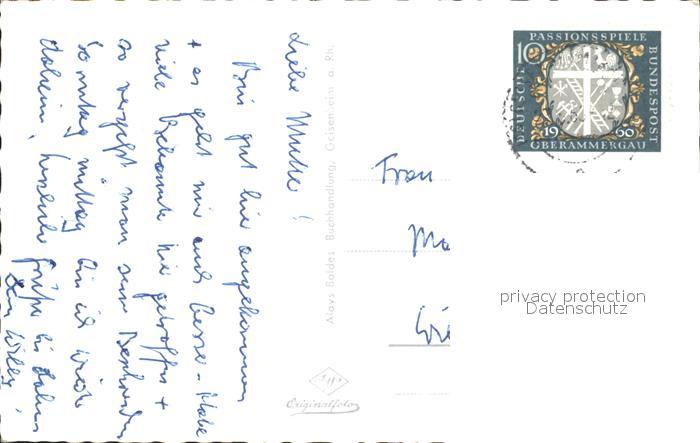 Liebe Mutter!
Bin gut hier angekommen
+ es geht mir auch besser - Habe
viele Bekannte hier getroffen +
so vergißt man seine Beschwerden
Sonntag mittag bin ich wieder
daheim, herzliche Grüße bis dahin
Dein Willy
Aloys Baldes Buchhandlung, Geisenheim a. Rh.
Originalfoto
Frau
PASSIONSSPIELE
10
DEUTSCHE
BUNDESPOST
1960
OBERAMMERGAU
privacy protection
Datenschutz